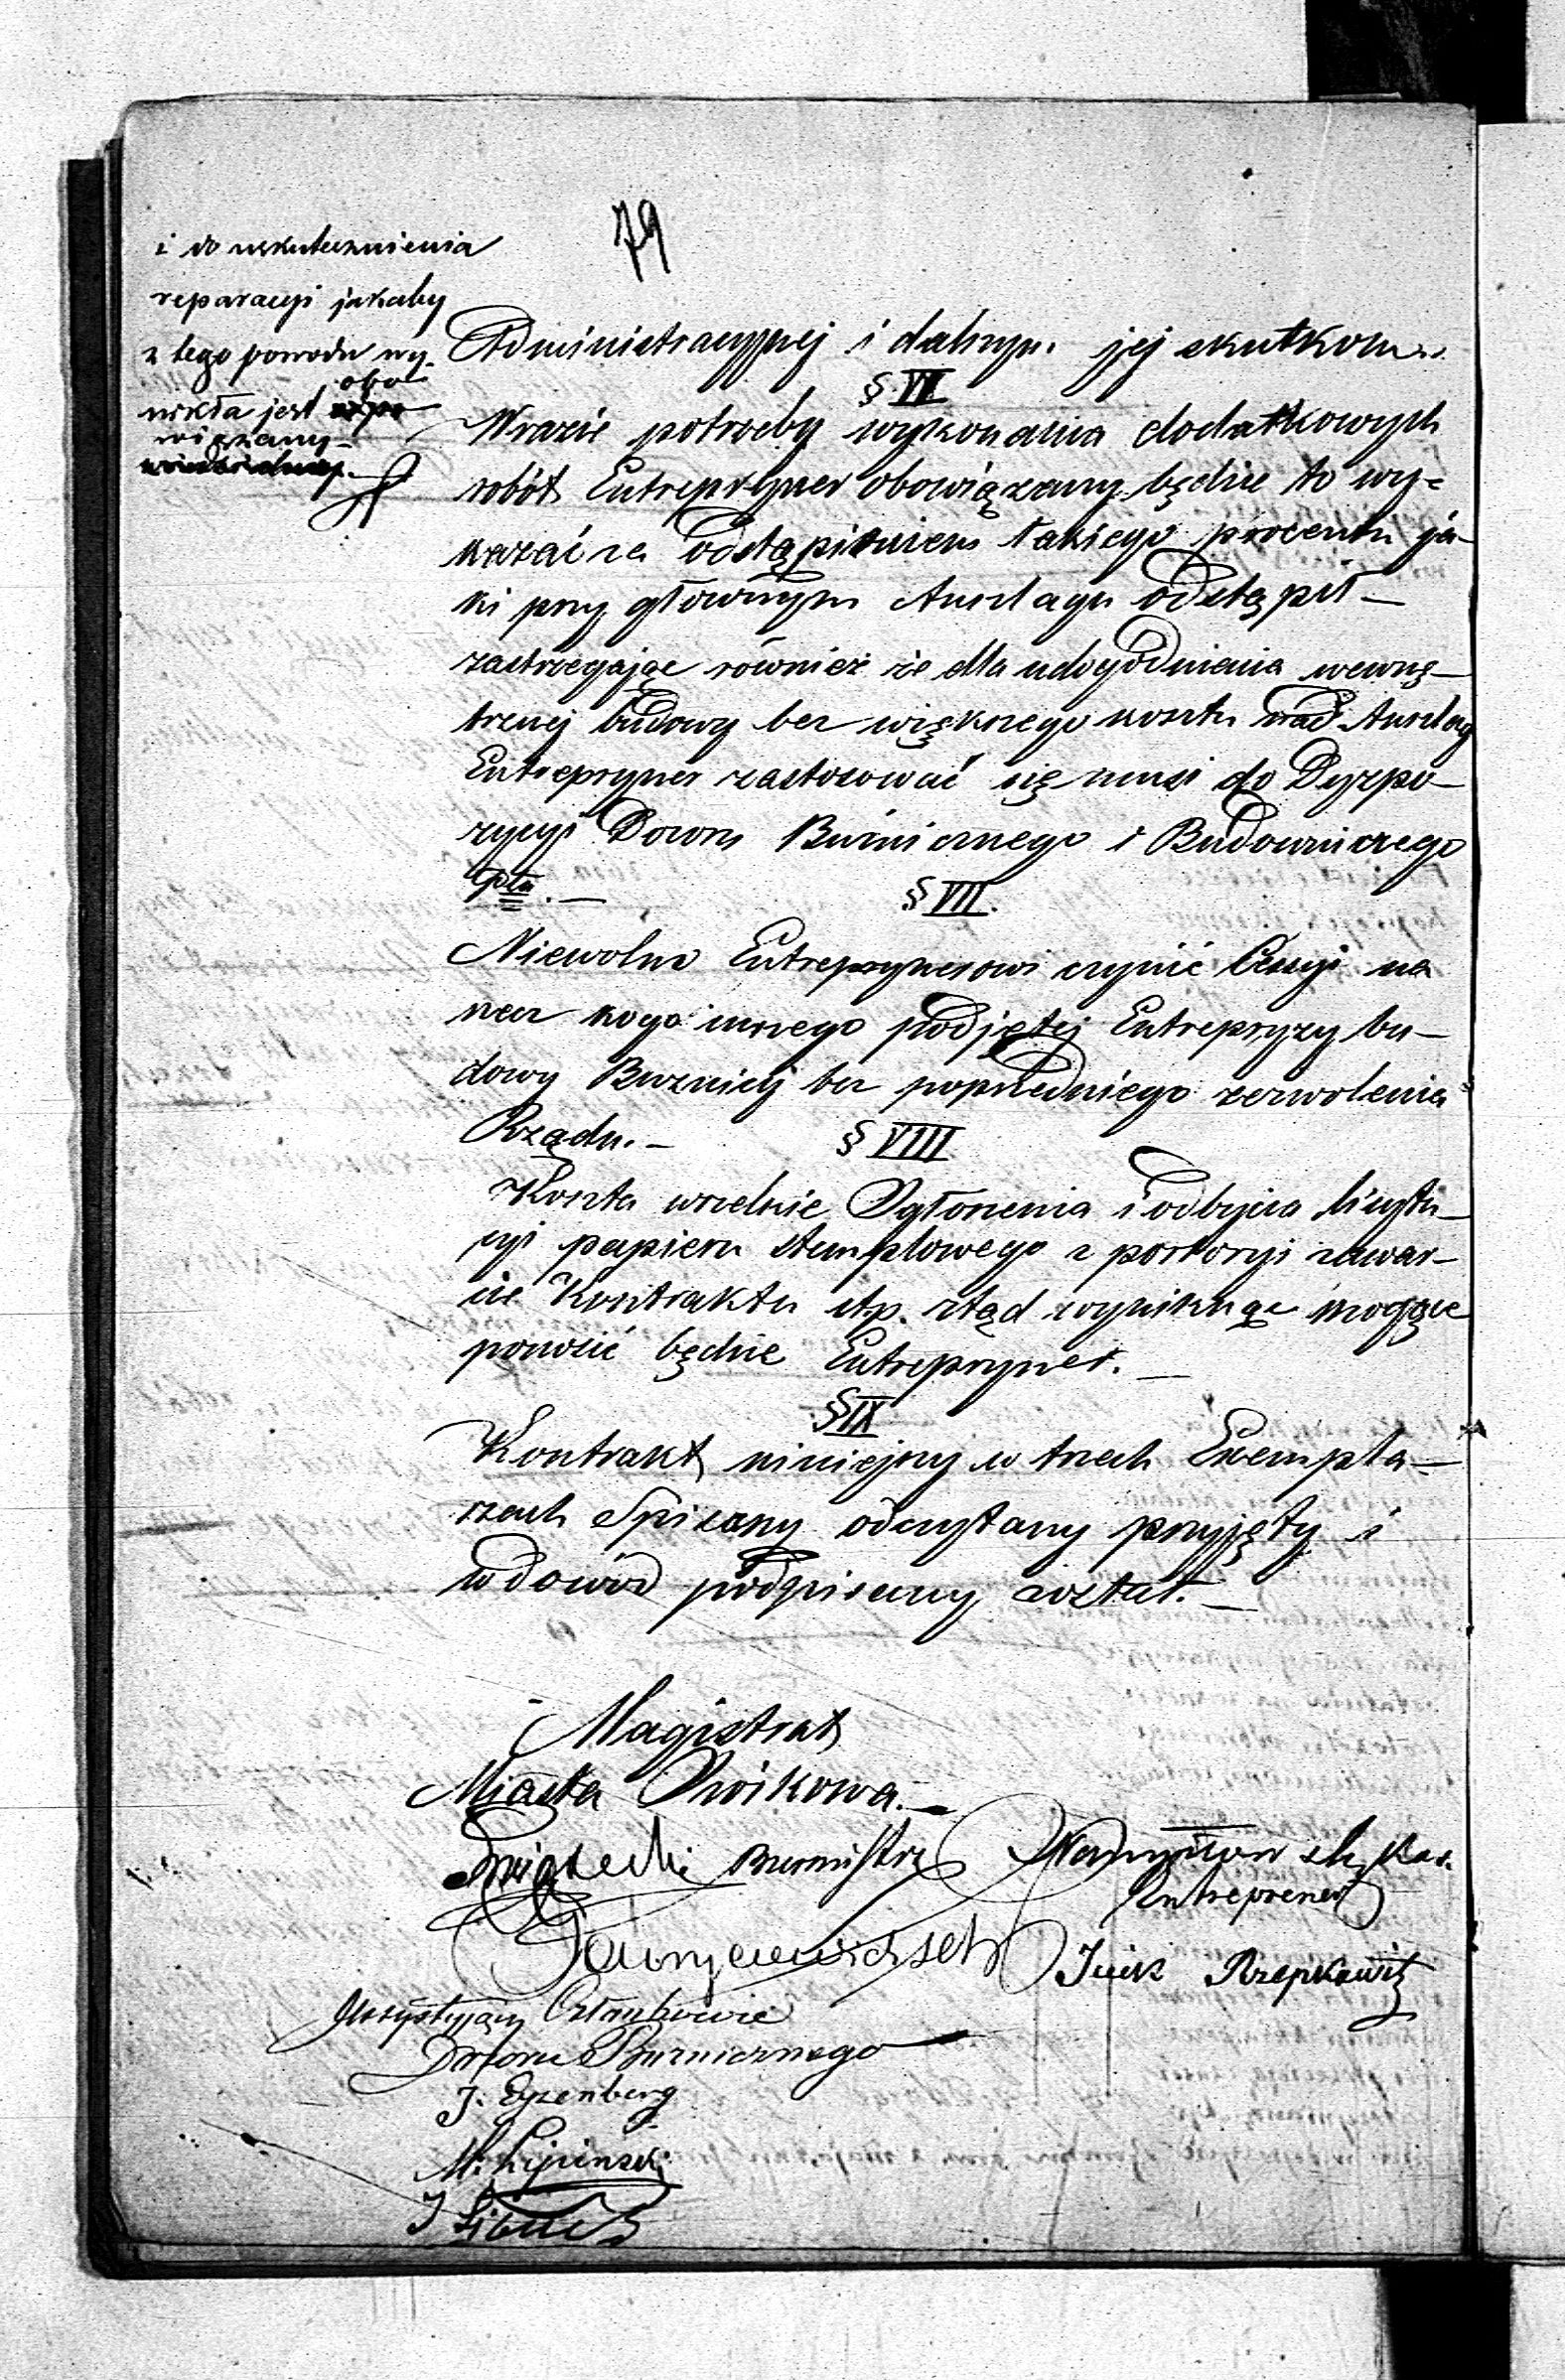 79
i do uskutecznienia
reparacyi jakaby
z tego powodu wy-
nikła jest obo-
wiązany
Administracyjnej i dalszym jej skutkom.
§ VI
W razie potrzeby wykonania dodatkowych
robót Entrepryner obowiązany będzie to wy-
kazać za odstąpieniem takiego procentu ja-
ki przy głównym Anszlagu odstąpił —
zastrzegając również że dla udogodnienia wewnę-
trznej budowy bez większego kosztu nad Anszlag
Entrepryner zastosować się musi do Dyzpo-
zycyi Dozoru Bużnicznego i Budowniczego
Ptu. —
§ VII.
Niewolno Entreprynerowi czynić Cessyi na
rzecz kogo innego podjętej Entrepryzy bu-
dowy Buznicy bez poprzedniego zezwolenia
Rządu. —
§ VIII
Koszta wszelkie Ogłoszenia i odbycia licyta-
cyi papieru stemplowego z portoryi zawar-
cie Kontraktu itp. ztąd wyniknąć mogące
ponosić będzie Entrepryner. —
§ IX
Kontrakt niniejszy w trzech Exempla-
rzach Spisany odczytany przyjęty i
w dowód podpisany został. —
Magistrat
Miasta Ozorkowa. —
Burmistrz
Entreprener
Icek Rzepkowicz
Assystujący Członkowie
Dozoru Buznicznego
J. Eyzenberg
M. Lipinski